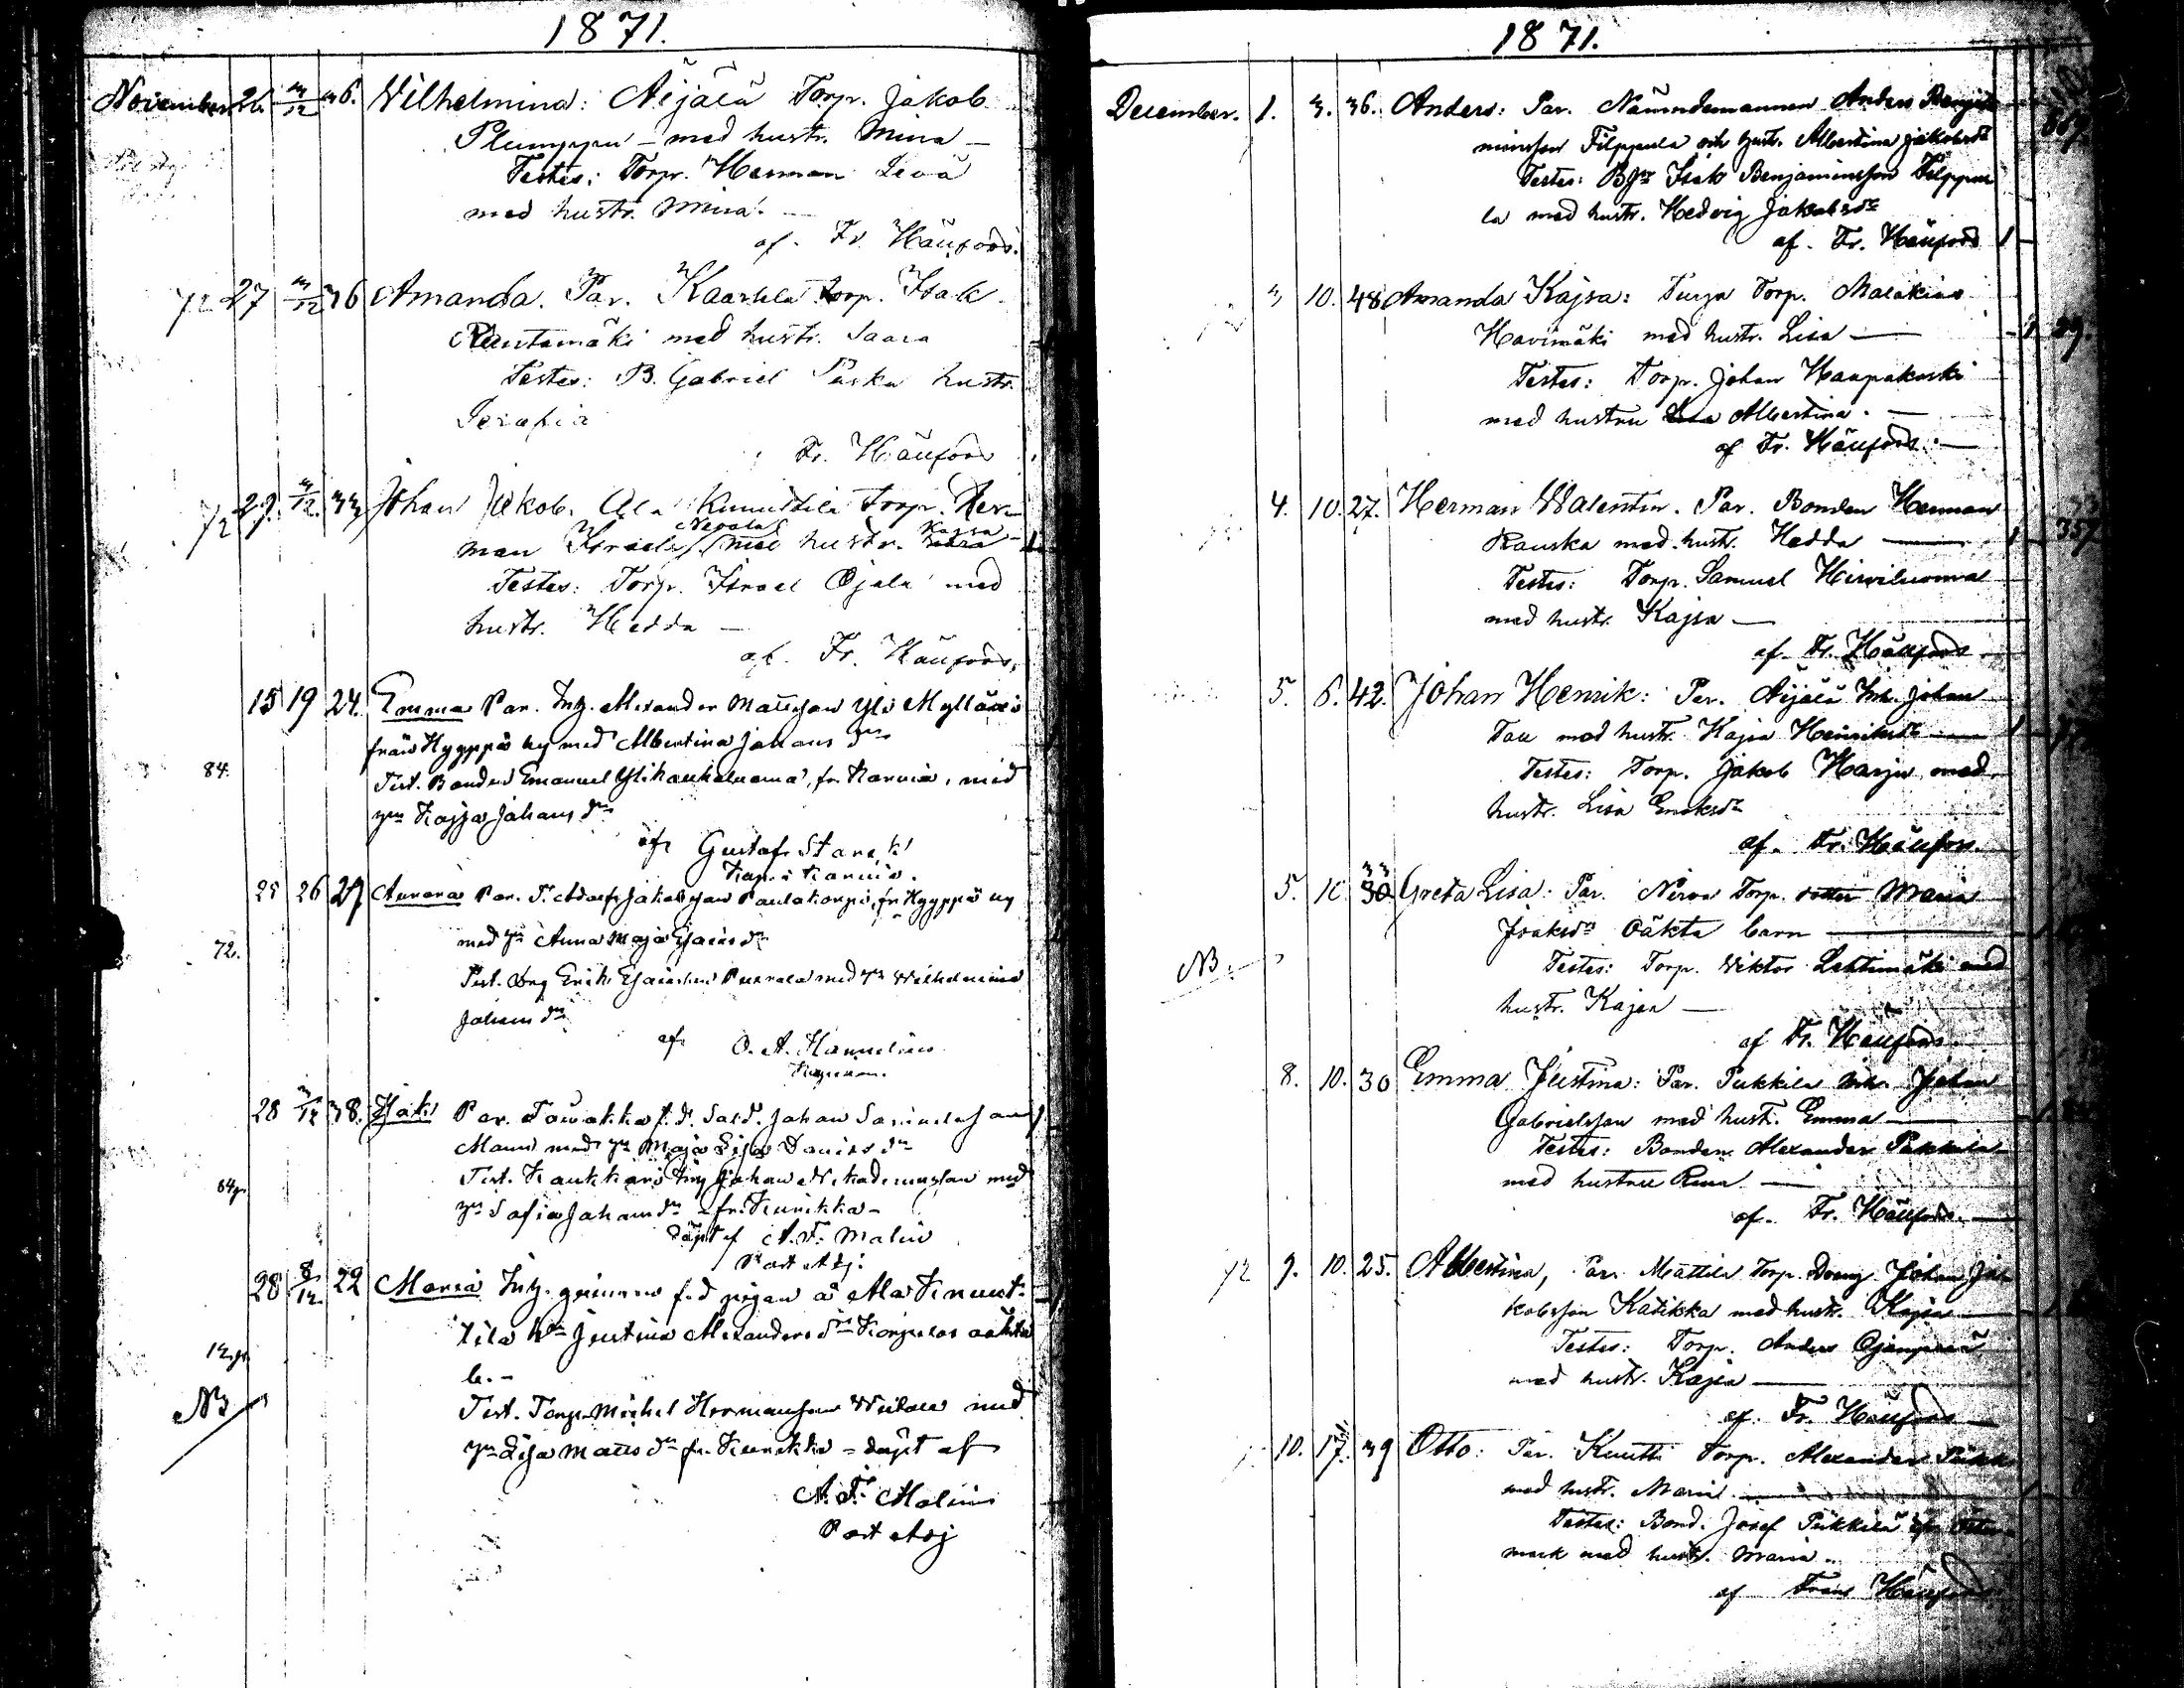 1871.
November 26. 3/12 36. Wilhelmina: Äijälä Torp. Jakob
Plumppu – med hustr. Mina –
Testes: Torp. Herman Levä
med hustr. Mina. –
af. Fr. Häufors.
72 27 3/12 36 Amanda. Par. Kaarlela Torp. Isak
Rautamäki med hustr. Saara
Testes: B. Gabriel Paska hustr.
Serafia
Fr. Häufors
72 29. 3/12. 33 Johan Jakob. Ala Knuuttila Torp. Her-
man Israels Nevala med hustr. Kajsa
Testes: Torp. Israel Ojala med
hustr. Hedda –
af. Fr. Häufors,
15 19 24. Emma Par. Inh. Alexander Mattsson Yli Mylläri
från Hyyppä by med Albertina Johans dr
84.
Test. Bonden Emanuel Ylikauhaluoma, fr. Karvia, med
hn Kajsa Johans dr
af Gustaf Starck
Kap. i Karvia.
25 26 27 Aurora Par. T. Adolf Jakobsson Paulakorpi, fr Hyyppä by
med hn Anna Maja Esaias dr
72.
Test. Drg Erik Esaiasson Puxala med hn Wilhelmina
Johans dr
af O. A. Hannelius
Kapellan.
28 3/12 38. Isak Par. Täwakka f.d. Sald. Johan
Mann med hn Maja Lisa Daniels dr
Test. Kaukkari Drg Johan Nikodemusson med
64.
hn Sofia Johans dr – fr. Kurikka –
döpt af A. F. Malin
Past Adj.
28 8/12 22 Maria Inh. qvinnan f.d. pigan å Ala Knuut-
tila hn Justina Alexanders dr Korpelas oäkta
12.
b. –
NB
Test. Torp. Michel Hermansson Weitola med
hn Lisa Matts dr fr. Kurikka – döpt af
A. F. Malin
Past Adj
1871.
December. 1. 3. 36. Anders: Par. Nämndemannen Anders Benja-
minsson Filppula och hustr. Albertina Jakobsdr
Testes: Bsn Isak Benjaminsson Filppu-
la med hustr. Hedvig Jakobsdr
af. Fr. Häufors
3 10. 48 Amanda Kajsa: Turja Torp. Malakias
Havimäki med hustr. Lisa –
29.
Testes: Torp. Johan Haapakoski
med hustru Albertina. –
af Fr. Häufors. –
4. 10. 27. Herman Walentin. Par. Bonden Herman
Rauska med hustr. Hedda –
357
Testes: Torp. Samuel Hirviluoma
med hustr. Kajsa –
af. Fr. Häufors
5. 6. 42. Johan Henrik: Par. Äijälä Inh. Johan
Tau med hustr. Kajsa Henriksdr –
Testes: Torp. Jakob Harju med
hustr. Lisa Eriksdr
af. Fr. Häufors.
5. 10 33 30 Greta Lisa: Par. Nirva Torp. dotter Maria
Isaksdr oäkta barn –
NB.
Testes: Torp. Wiktor Lehtimäki med
hustr. Kajsa –
af Fr. Häufors.
8. 10. 30 Emma Justina: Par. Pukkila Inh. Johan
Gabrielsson med hustr. Emma –
Testes: Bonden Alexander Pukkila
med hustru Rina –
af. Fr. Häufors. –
72 9. 10. 25. Albertina, Par. Mattila Torp. Dreng Johan Ja-
kobsson Katikka med hustr. Kajsa –
Testes: Torp. Anders Ojanperä
med hustr. Kajsa –
af. Fr. Häufors –
10. 17. 39 Otto: Par. Knuutti Torp. Alexander
med hustr. Maria. –
Testes: Bond. Josef Pukkila fr. Öster-
mark med hustr. Maria.
af Frans Häufors.